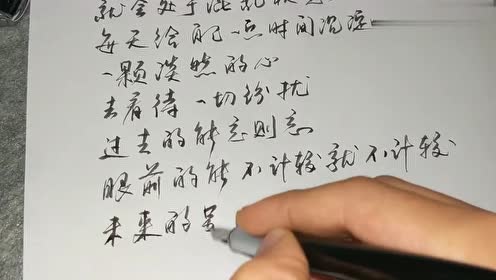 就会处于混乱状
每天给配一点时间沉淀
一颗淡然的心
去看待一切纷扰
过去的能忘则忘
眼前的能不计较就不计较
未来的